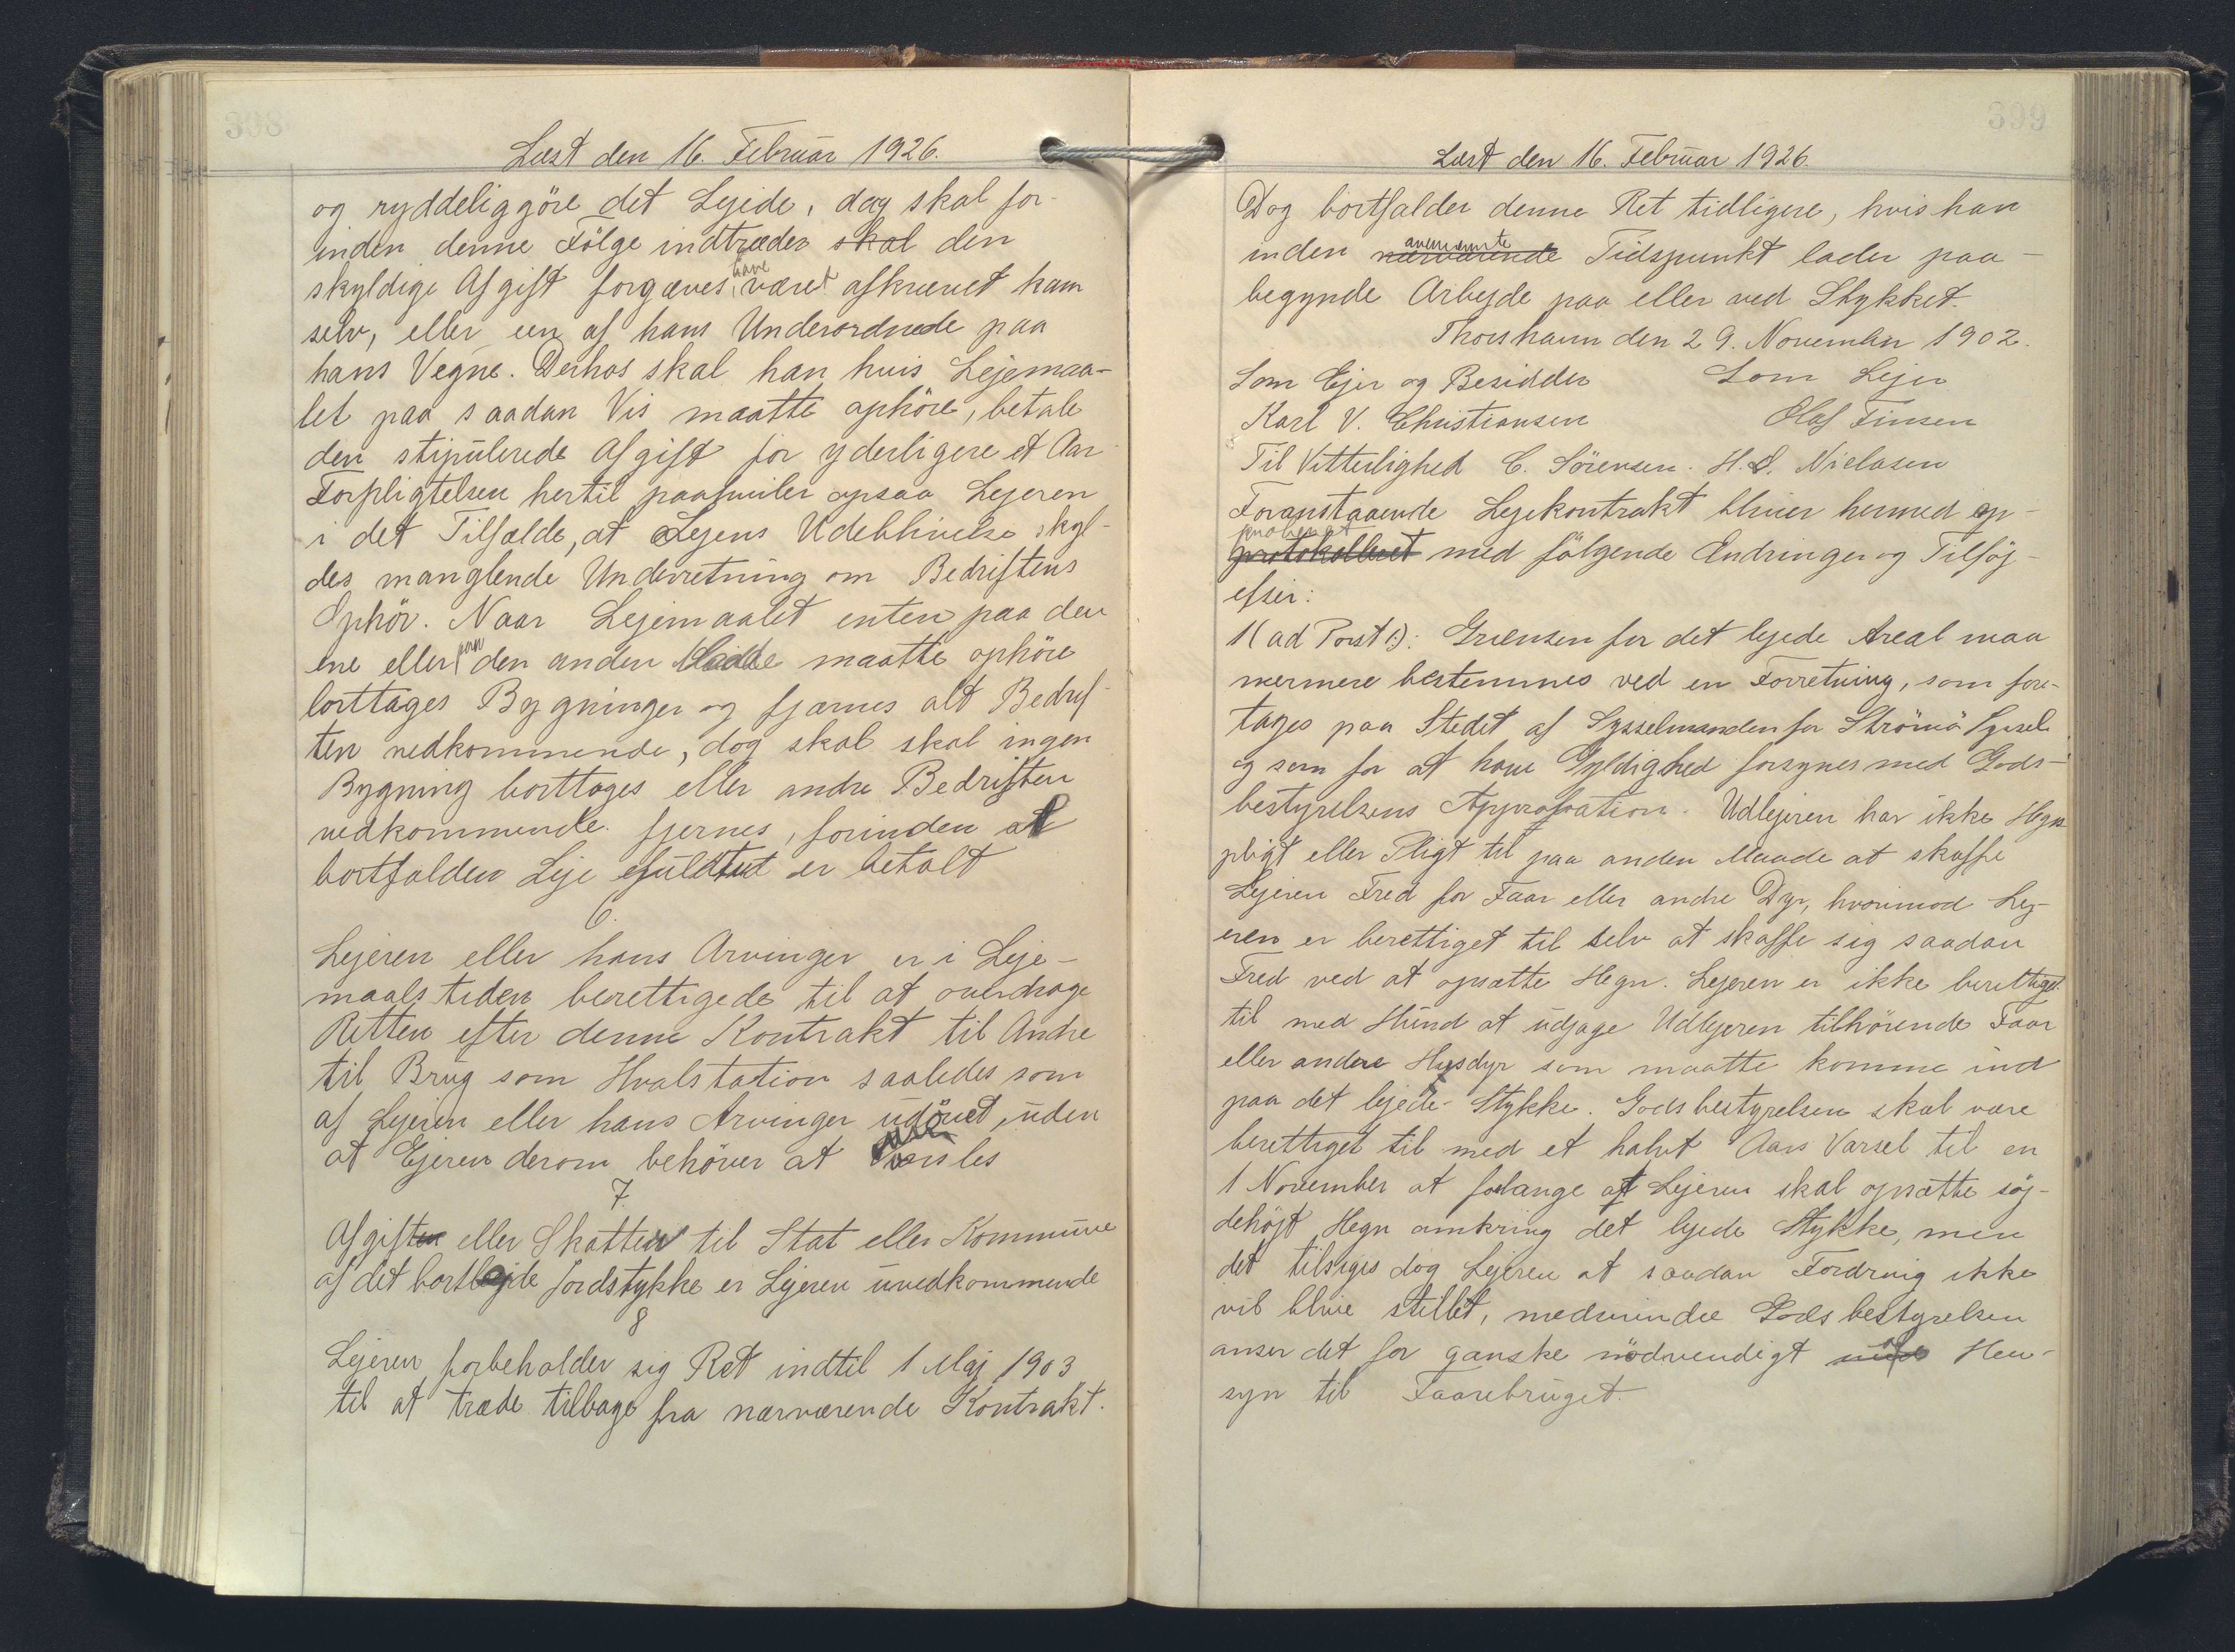 398
Læst den 16. Februar 1926.
og ryddeliggöre det Lejede, dog skal for-
inden denne Fölge indtræder skal den
skyldige Afgift forgæves have været afkrævet ham
selv, eller een af hans Underordnede paa
hans Vegne. Derhos skal han hvis Lejemaa-
let paa saadan Vis maatte ophöre, betale
den stipulerede Afgift for yderligere et Aar
Forpligtelsen hertil paahviler ogsaa Lejeren
i det Tilfælde, at Lejens Udeblivelse skyl-
des manglende Underretning om Bedriftens
Ophör. Naar Lejemaalet enten paa den
ene eller paa den anden Maade maatte ophöre
borttages Bygninger og fjærnes alt Bedrif-
ten vedkommende, dog skal skal ingen
Bygning borttages eller andre Bedriften
vedkommende fjernes, forinden at
bortfalden Leje fuldtud er betalt
6.
Lejeren eller hans Arvinger er i Leje-
maalstiden berettigede til at overdrage
Retten efter denne Kontrakt til Andre
til Brug som Hvalstation saaledes som
af Lejeren eller hans Arvinger udövet, uden
at Ejeren derom behöver at varsles
7.
Afgiften eller Skatten til Stat eller Kommune
af det bortlejde Jordstykke er Lejeren uvedkommende
8
Lejeren forbeholder sig Ret indtil 1 Maj 1903
til at træde tilbage fra nærværende Kontrakt.
399
Læst den 16. Februar 1926.
Dog bortfalder denne Ret tidligere, hvis han
inden nærværende anennævnte Tidspunkt lader paa-
begynde Arbejde paa eller ved Stykket.
Thorshavn den 29. November 1902.
Som Ejer og Besidder Som Lejer
Karl V. Christiansen Olaf Finsen
Til Vitterlighed C. Sörensen. H. D. Nielasen
Foranstaaende Lejekontrakt bliver hermed ap-
protokolleret proberet med fölgende Ændringer og Tilföj-
elser:
1(ad Post 1): Grænsen for det lejede Areal maa
nærmere bestemmes ved en Forretning, som fore-
tages paa Stedet af Sysselmanden for Strömö Syssel
og som for at have Gyldighed forsynes med Gods-
bestyrelsens Approbation. Udlejeren har ikke Hegn
pligt eller Pligt til paa anden Maade at skaffe
Lejeren Fred for Faar eller andre Dyr, hvorimod Lej-
eren er berettiget til selv at skaffe sig saadan
Fred ved at opsætte Hegn. Lejeren er ikke berettiget
til med Hund at udjage Udlejeren tilhörende Faar
eller andre Husdyr som maatte komme ind
paa det lejede Stykke. Godsbestyrelsen skal være
berettiget til med et halvt Aars Varsel til en
1 November at forlange at Lejeren skal opsætte söj-
dehöjt Hegn omkring det lejede Stykke, men
det tilsiges dog Lejeren at saadan Fordring ikke
vil blive stillet, medmindre Godsbestyrelsen
anser det for ganske nödvendigt Hen-
syn til Faarebruget.